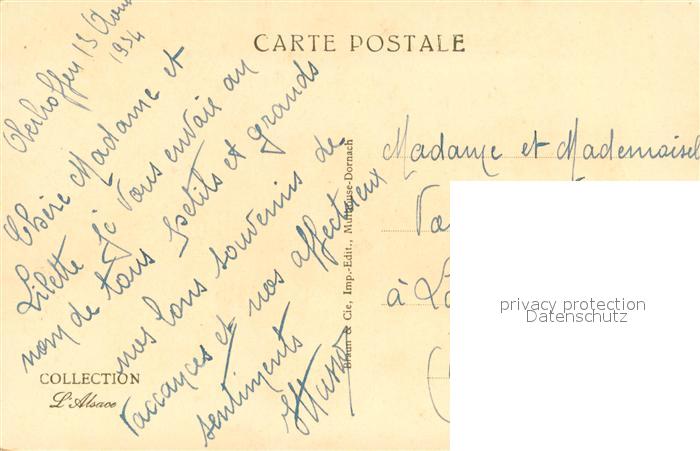 CARTE POSTALE
Oberhoffen 15 Août
1934
Chère Madame et
Lilette je vous envoie au
nom de tous petits et grands
nos bons souvenirs de
vaccances et nos affectueux
sentiments
Braun & Cie, Imp.-Edit., Mulhouse-Dornach
Madame et Mademoisel
à
COLLECTION
L'Alsace
privacy protection
Datenschutz